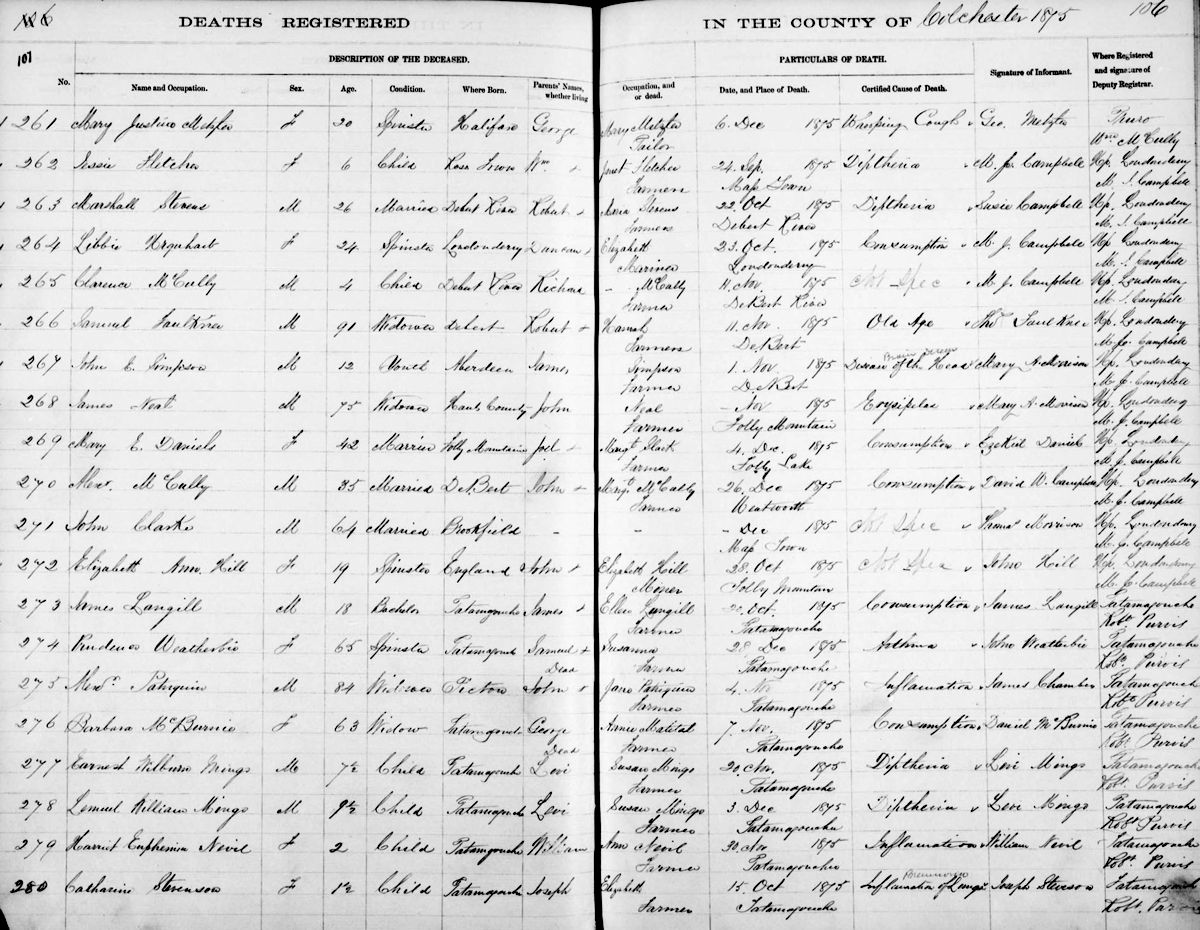 106 DEATHS REGISTERED IN THE COUNTY OF Colchester 1875 106
107 DESCRIPTION OF THE DECEASED. PARTICULARS OF DEATH.
No. Name and Occupation. Sex. Age. Condition. Where Born. Parents' Names, whether living Occupation, and or dead. Date, and Place of Death. Certified Cause of Death. Signature of Informant. Where Registered and signature of Deputy Registrar.
261 Mary Justina Metzler F 20 Spinster Halifax George Mary Metzler 6 Dec 1875 Whooping Cough Geo. Metzler Truro
Tailor Wm McCully
262 Jessie Fletcher F 6 Child Ross Town Wm + Janet Fletcher 24 Sep. 1875 Diptheria M. J. Campbell Up. Londonderry
Farmer Mass Town M. J. Campbell
263 Marshall Stevens M 26 Married Debert River Robert + Maria Stevens 22 Oct 1875 Diptheria Susie Campbell Up. Londonderry
Farmer Debert River M. J. Campbell
264 Libbie Urquhart F 24 Spinster Londonderry Duncan + Elizabeth 23 Oct. 1875 Consumption M. J. Campbell Up Londonderry
Mariner Londonderry M. J. Campbell
265 Clarence McCully M 4 Child Debert River Richard - McCully 11. Nov. 1875 Not Spec M. J. Campbell Up. Londonderry
Farmer DeBert River M. J. Campbell
266 Samuel Faulkner M 91 Widower Debert Robert + Hannah 11. Nov. 1875 Old Age Thos Faulkner Up. Londonderry
Farmer DeBert M. J. Campbell
267 John C. Simpson M 12 Youth Aberdeen James Simpson 1. Nov 1875 Disease of the Head Brain Fever Mary A. Morrison Up. Londonderry
Farmer DeBert M. J. Campbell
268 James Neal M 75 Widower Hants County John Neal - Nov 1875 Erysipelas Mary A. Morrison Up. Londonderry
Farmer Folly Mountain M. J. Campbell
269 Mary E. Daniels F 42 Married Folly Mountain Joel + Margt 4. Dec. 1875 Consumption Ezekiel Daniels Up. Londonderry
Farmer Folly Lake M. J. Campbell
270 Alexr. McCully M 35 Married DeBert John + Margt McCully 26. Dec 1875 Consumption David W. Campbell Up. Londonderry
Farmer Wentworth M. J. Campbell
271 John Clarke M 64 Married Brookfield - - - Dec 1875 Not Spec Morrison Up. Londonderry
Mass Town M. J. Campbell
272 Elizabeth Ann Hill F 19 Spinster England John + Elizabeth Hill 28. Oct 1875 Not Spec John Hill Up. Londonderry
Miner Folly Mountain M. J. Campbell
273 James Langill M 18 Bachelor Tatamagouche James + Ellen Langill Oct. 1875 Consumption James Langill Tatamagouche
Farmer Tatamagouche Robt. Purvis
274 Prudence Weatherbie F 65 Spinster Tatamagouche Samuel + Susanna 28 Dec 1875 Asthma John Weatherbie Tatamagouche
Dead Farmer Tatamagouche Robt. Purvis
275 Alexdr. Patriquin M 84 Widower Pictou John + Jane Patriquin 4. Nov 1875 Inflamation James Chambers Tatamagouche
Farmer Tatamagouche Robt Purvis
276 Barbara McBurnie F 63 Widow Tatamagouche George Annie Matatal 7. Nov. 1875 Consumption Daniel McBurnie Tatamagouche
Dead Farmer Tatamagouche Robt. Purvis
277 Earnest Wilburn Mingo M 7½ Child Tatamagouche Levi Susan Mingo 20. Nov. 1875 Diptheria Levi Mingo Tatamagouche
Farmer Tatamagouche Robt. Purvis
278 Lemuel William Mingo M 9½ Child Tatamagouche Levi Susan Mingo 3. Dec 1875 Diptheria Levi Mingo Tatamagouche
Farmer Tatamagouche Robt. Purvis
279 Harriet Euphemia Nevil F 2 Child Tatamagouche William Ann Nevil 30. Nov 1875 Inflamation William Nevil Tatamagouche
Farmer Tatamagouche Robt. Purvis
280 Catharine Stevenson F 1½ Child Tatamagouche Joseph Elizabeth 15. Oct 1875 Inflamation of Lungs Pneumonia Joseph Stevenson Tatamagouche
Farmer Tatamagouche Robt. Purvis